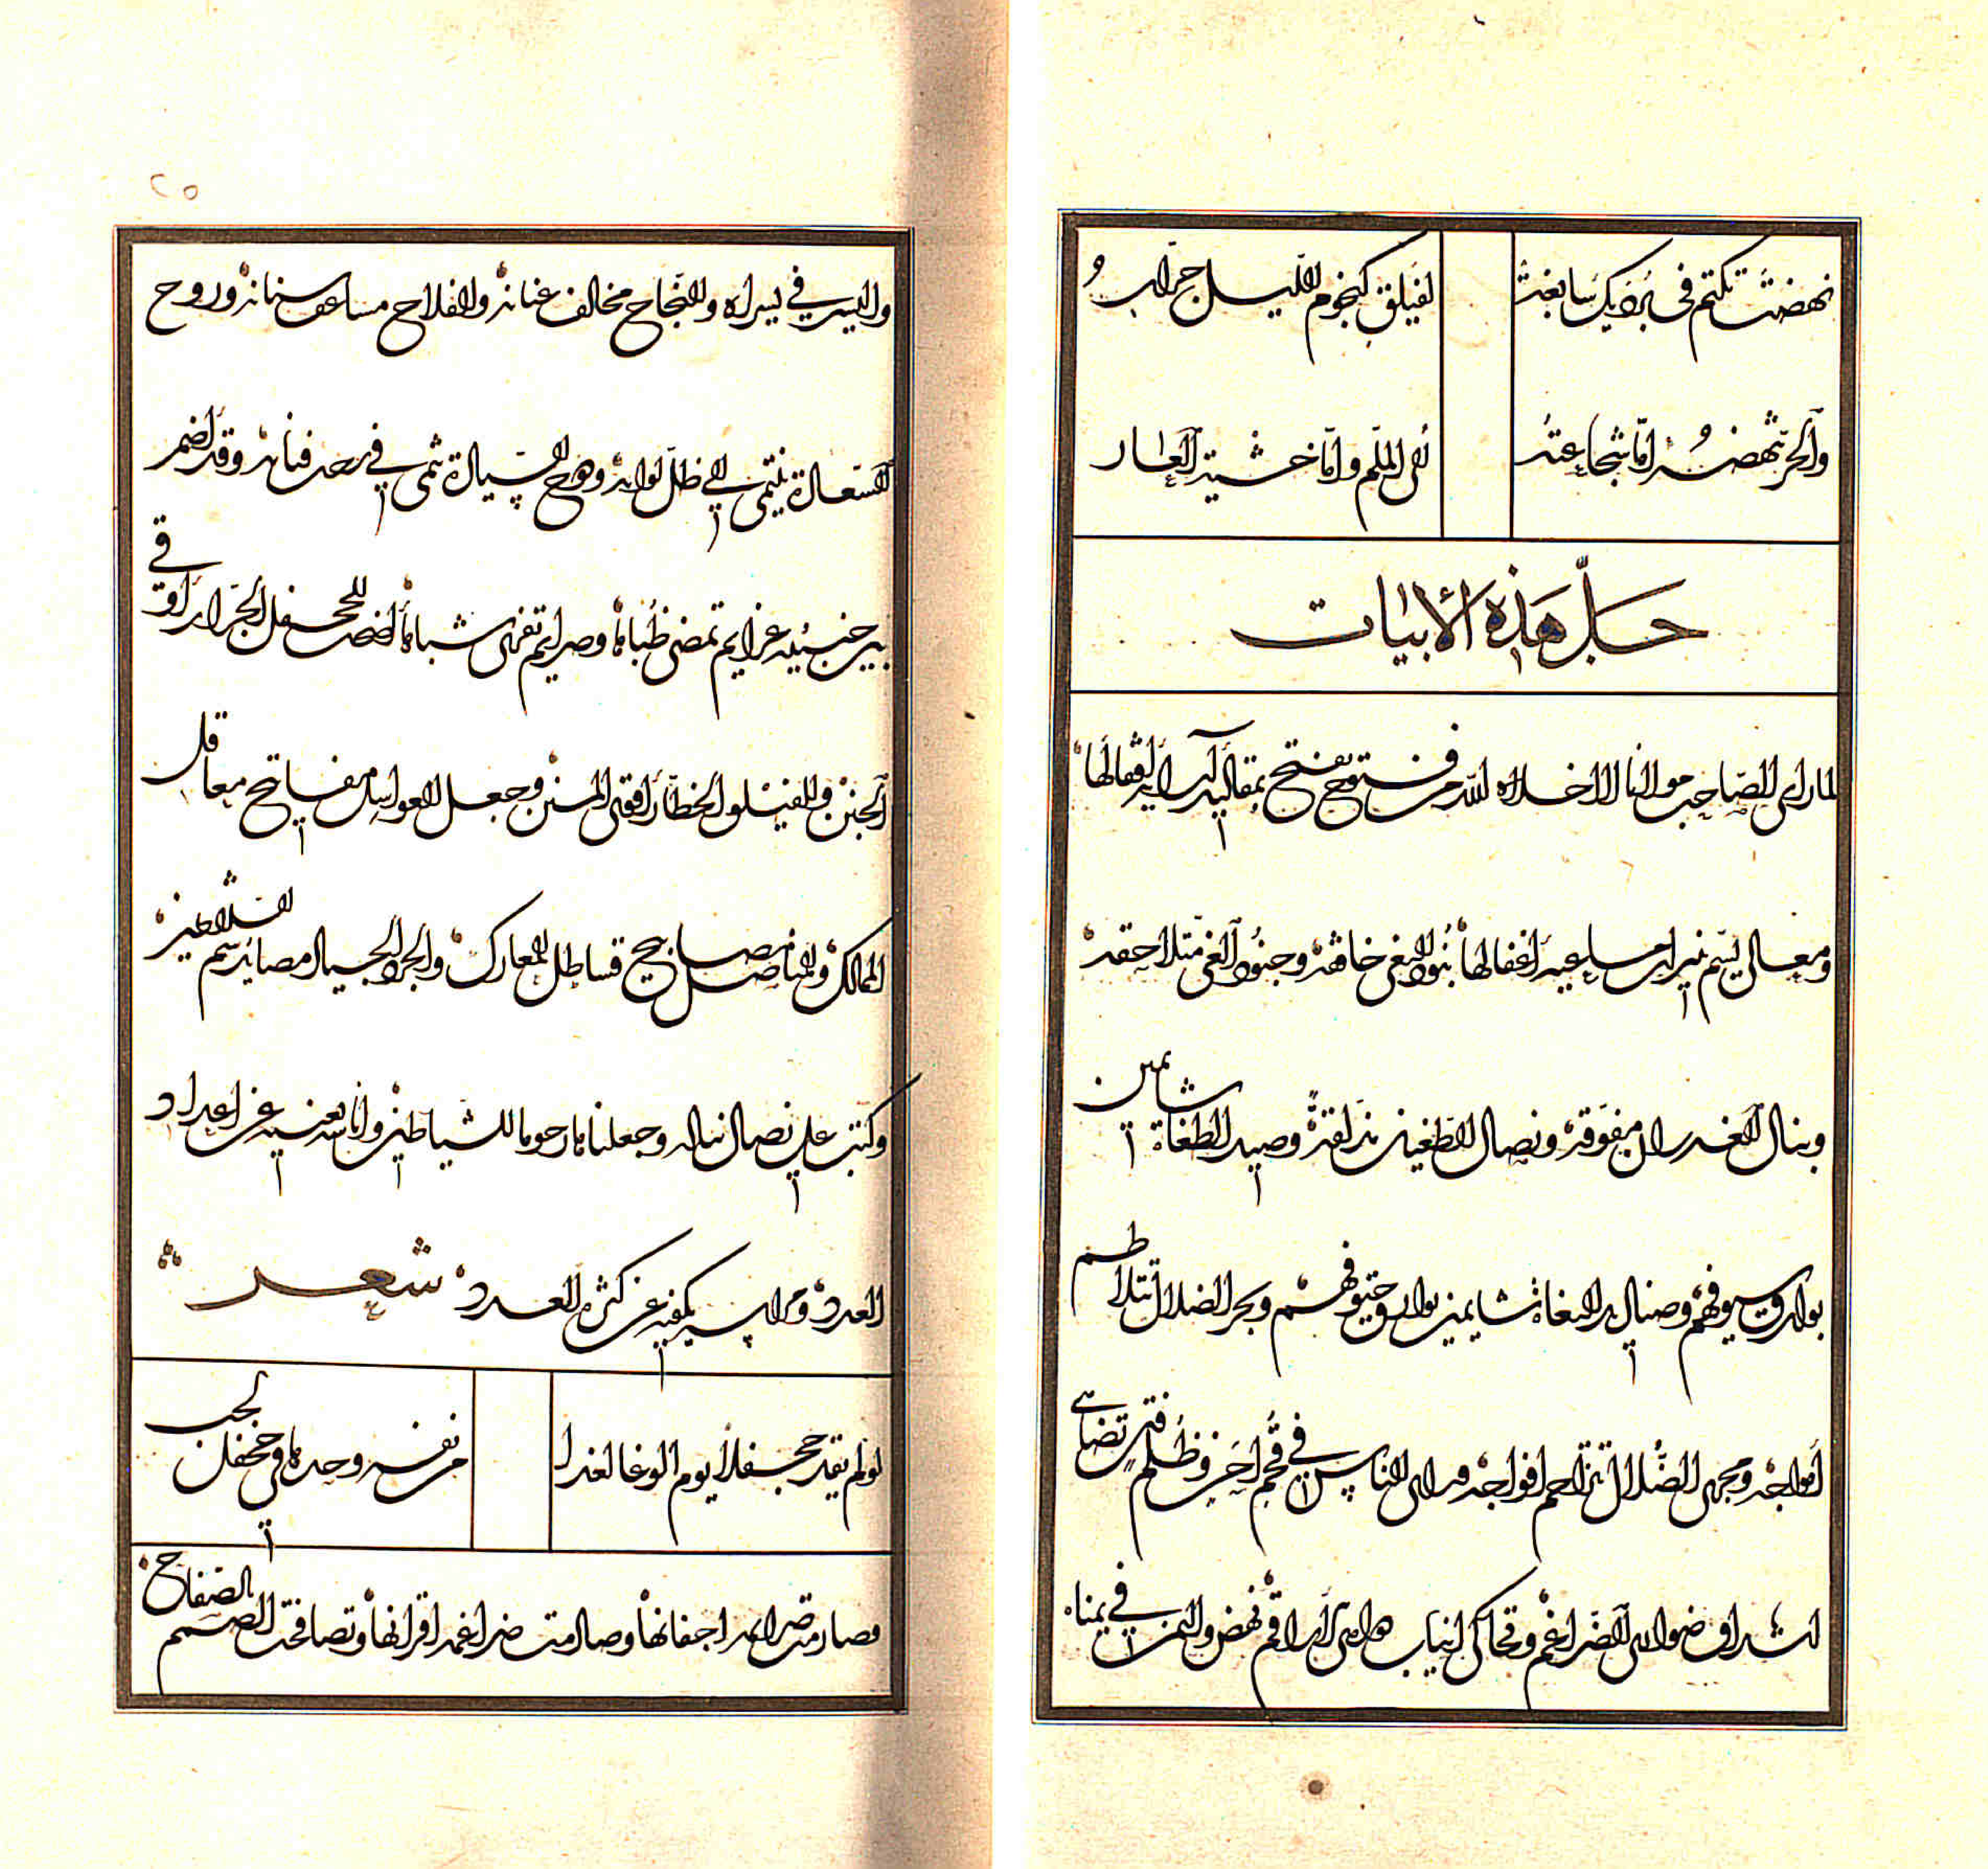 نهضت تكتم في برديك سابغة
لفيلق كنجوم الليل جرار
والحر تنهضه اما شجاعته
الى الملم واما خشية العار
حل هذه الأبيات
لما رأى الصاحب مولانا لا اخلاه الله من فتوح يفتح بمقاليد آرائه اقفالها
ومعال يسم بنير ان مساعيه اغفالها بنود البغي خافقة وجنود الغي متلاحقة
ونبال الغدر ان مفوقة ونصال الطغيان مذلقة وصيد الطغاة شائمين
بوارق سيوفهم وصناديد البغاة شائمين بوارق حتوفهم وبحر الضلال تتلاطم
امواجه ومجرى الضلال تتزاحم افواجه ورأى الناس في قحم احن وظلم فتن تضاهي
اشداق ضواري الضراغم وتحاكي انياب الأراقم نهض واليمن في يمناه
٢٥
واليسر في يسراه والنجاح محالف عنانه والفلاح مساعف سنانه وروح
السعادة تنتمي الى ظل لوائه وهوج السيادة ترتمي في رحب فنائه وقد اضمر
بين جنبيه عزائم تمضي ظباها وصرائم تفري شباها افضت للجحفل الجرار اوقى
الجنن وللفيلق الخطار اقتى المنن وجعل العواسل مفاتيح معاقل
الممالك والمناصل مصابيح قساطل المعارك والجرد الجياد مصائد السلاطين
وكتب على نصال نباله وجعلناها رجوما للشياطين وانا بأسه يغنيه عن اعداد
العدد ومراسه يكفيه عن كثرة العدد شعر
لو لم يقد جحفلا يوم الوغا لغدا
من نفسه وحدها في جحفل لجب
فصارمت صوارمه اجفانها وصالمت ضراغمه اقرانها وتصافحت الصفاح الصم